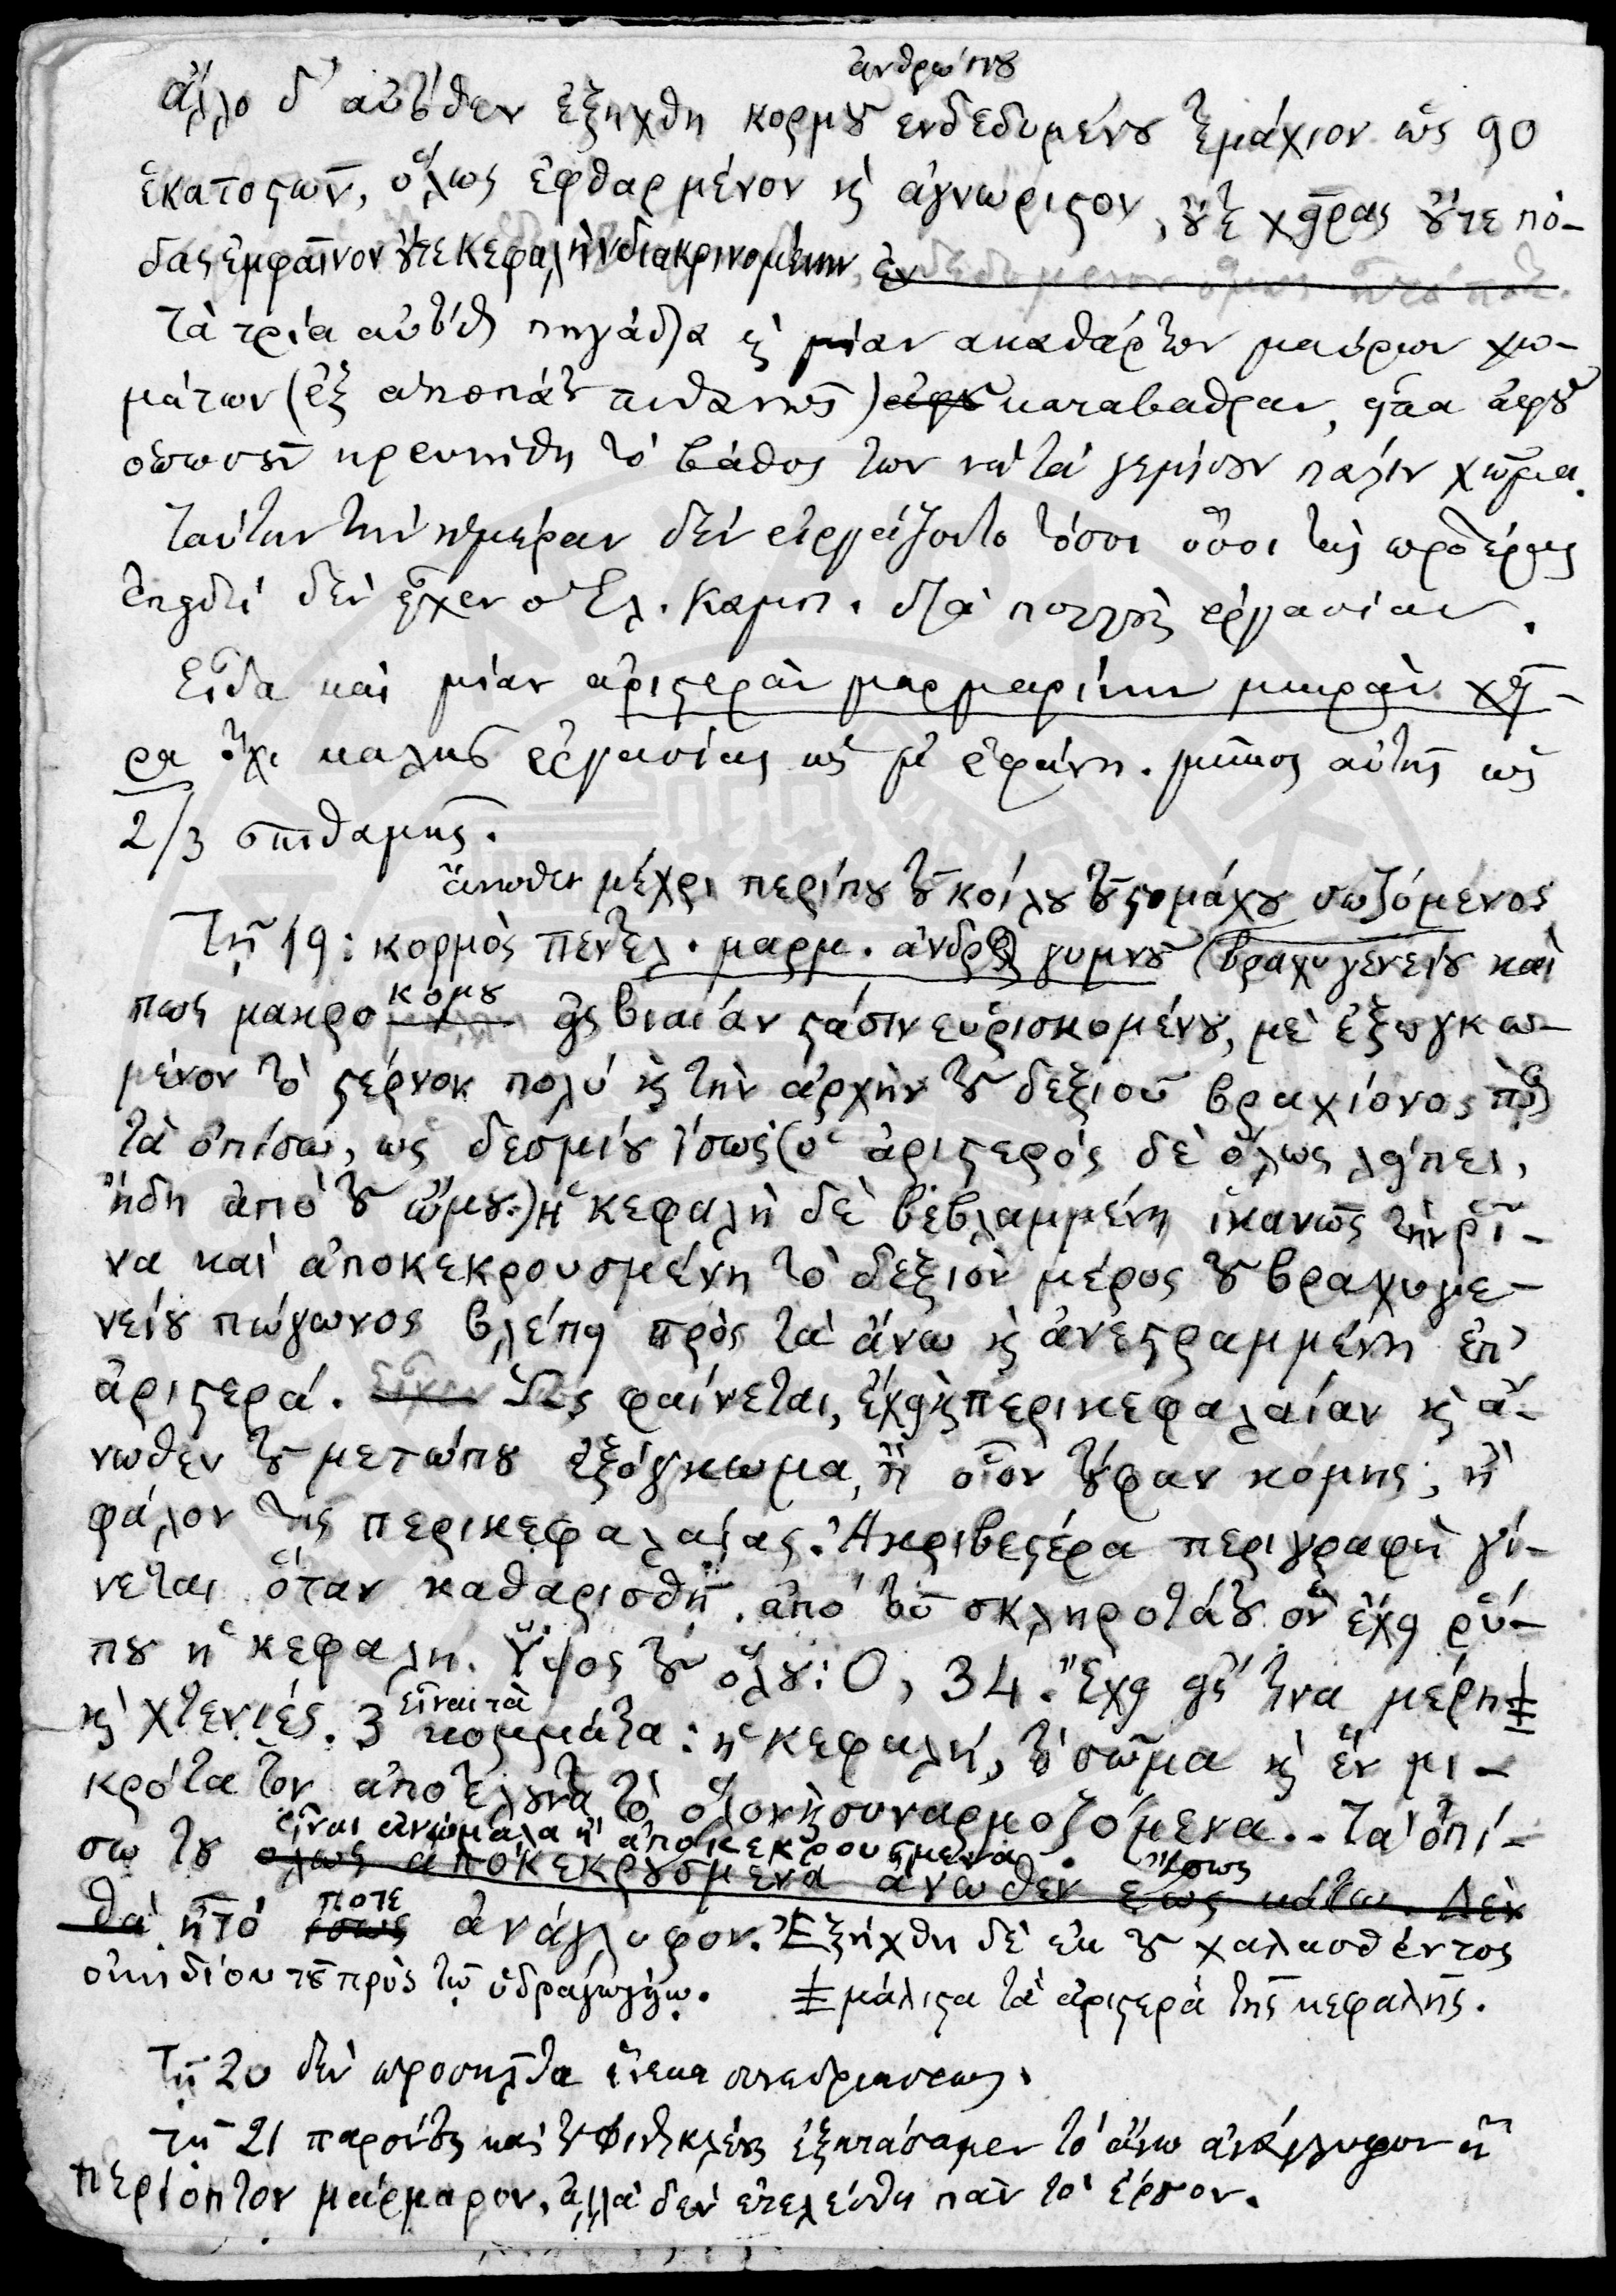 ἀνθρώπου
ἄλλο δ' αὐτόθεν ἐξήχθη κορμοῦ ἐνδεδυμένου τεμάχιον ὡς 90
ἑκατοστῶν, ὅλως ἐφθαρμένον κ̀ ἀγνώριστον, οὔτε χεῖρας οὔτε πό-
δας ἐμφαῖνον οὔτε κεφαλὴν διακρινομένην,
Τὰ τρία αὐτόθι πηγάδια εἰς μίαν ἀκαθάρτων μαύρων χω-
μάτων (ἐξ ἀποπάτου πιθανῶς) καταβαθραν, ἀφοῦ
ὁπωσοῦν ηρευνήθη τὸ βάθος των νὰ τὰ γεμίσουν πάλιν χῶμα.
Ταύτην τὴν ἡμέραν δὲν εἰργάζοντο τόσοι ὅσοι τὰς προτέρας
ἐπειδὴ δὲν εἶχεν ὁ Ἐλ. Καμπ. διὰ πολλοὺς ἐργασίαν.
Εἶδα καὶ μίαν ἀριστερὰν μαρμαρίνην μικρὰν χεῖ-
ρα ὄχι καλῆς ἐργασίας ὡς μοὶ ἐφάνη. μῆκος αὐτῆς ὡς
2/3 σπιθαμῆς.
ἄνωθεν μέχρι περίπου τοῦ κοίλου τοῦ στομάχου σωζόμενος
Τῇ 19: κορμὸς πεντελ. μαρμ. ἀνδρὸς γυμνοῦ (βραχυγενείου καὶ
πως μακροκόμου εἰς βιαίαν στάσιν εὑρισκομένου, μὲ ἐξωγκω-
μένον τὸ στέρνον πολὺ κ̀ τὴν ἀρχὴν τοῦ δεξιοῦ βραχίονος πρὸς
τὰ ὀπίσω, ὡς δεσμίου ἴσως (ὁ ἀριστερὸς δὲ ὅλως λείπει,
ἤδη ἀπὸ τοῦ ὤμου.) ἡ κεφαλὴ δὲ βεβλαμμένη ἱκανῶς τὴν ῥῖ-
να καὶ ἀποκεκρουσμένη τὸ δεξιὸν μέρος τοῦ βραχυγε-
νείου πώγωνος βλέπει πρὸς τὰ ἄνω κ̀ ἀνεστραμμένη ἐπ'
ἀριστερά. Ὡς φαίνεται, ἔχει κ̀ περικεφαλαίαν κ̀ ἄ-
νωθεν τοῦ μετώπου ἐξόγκωμα, ἢ οἷον τούφαν κόμης, ἢ
φάλον τῆς περικεφαλαίας. Ἀκριβεστέρα περιγραφὴ γί-
νεται ὅταν καθαρισθῇ ἀπὸ τοῦ σκληροτάτου ὃν ἔχει ῥύ-
που ἡ κεφαλή. Ὕψος τοῦ ὅλου: 0,34. Ἔχει εἰς τινα μέρη ‡
κ̀ χτενιές. 3 εἶναι τὰ κομμάτια: ἡ κεφαλή, τὸ σῶμα κ̀ ἓν μι-
κρότατον ἀποτελοῦντα τὸ ὅλον κ̀ συναρμοζόμενα. - Τὰ ὀπί-
σω του εἶναι ἀνώμαλα ἢ ἀποκεκρουσμένα. Ἴσως
ἦτό ποτε ἀνάγλυφον. Ἐξήχθη δὲ ἐκ τοῦ χαλασθέντος
οἰκιδίου τοῦ πρὸς τῷ ὑδραγωγείῳ. ‡ μάλιστα τὰ ἀριστερὰ τῆς κεφαλῆς.
Τῇ 20 δὲν προσῆλθα ἕνεκα συνεδριάσεως.
Τῇ 21 παρόντος καὶ τοῦ Φιντικλέους ἐξητάσαμεν τὸ ἄνω ἀνάγλυφον ἢ
περίοπτον μάρμαρον, ἀλλὰ δὲν ἐτελειώθη πᾶν τὸ ἔργον.